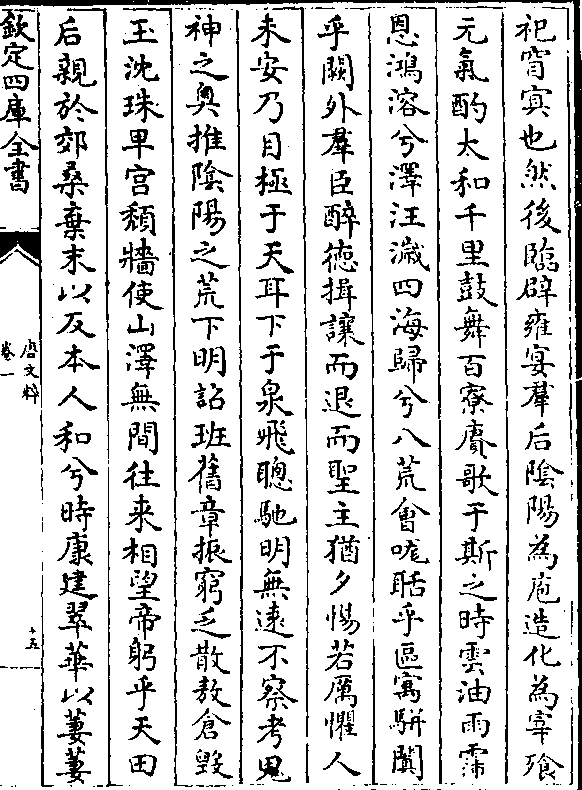 祀宵寅也然後臨辟雍宴羣后陰陽為庖造化為宰飱
元氣酌太和千里鼓舞百寮賡歌于斯之時雲油雨霈
恩鴻溶兮澤汪濊四海歸兮八荒會哤聒乎區寓駢闐
乎闕外羣臣醉徳揖讓而退而聖主猶夕惕若厲懼人
未安乃目極于天耳下于泉飛聰馳明無逺不察考鬼
神之奥推陰陽之荒下明詔班舊章振窮乏散敖倉毁
玉沈珠卑宫頽牆使山澤無間往来相望帝躬乎天田
后親於郊桑棄末以反本人和兮時康建翠華以萋萋
欽定四庫全書
唐文粹
卷一
十五